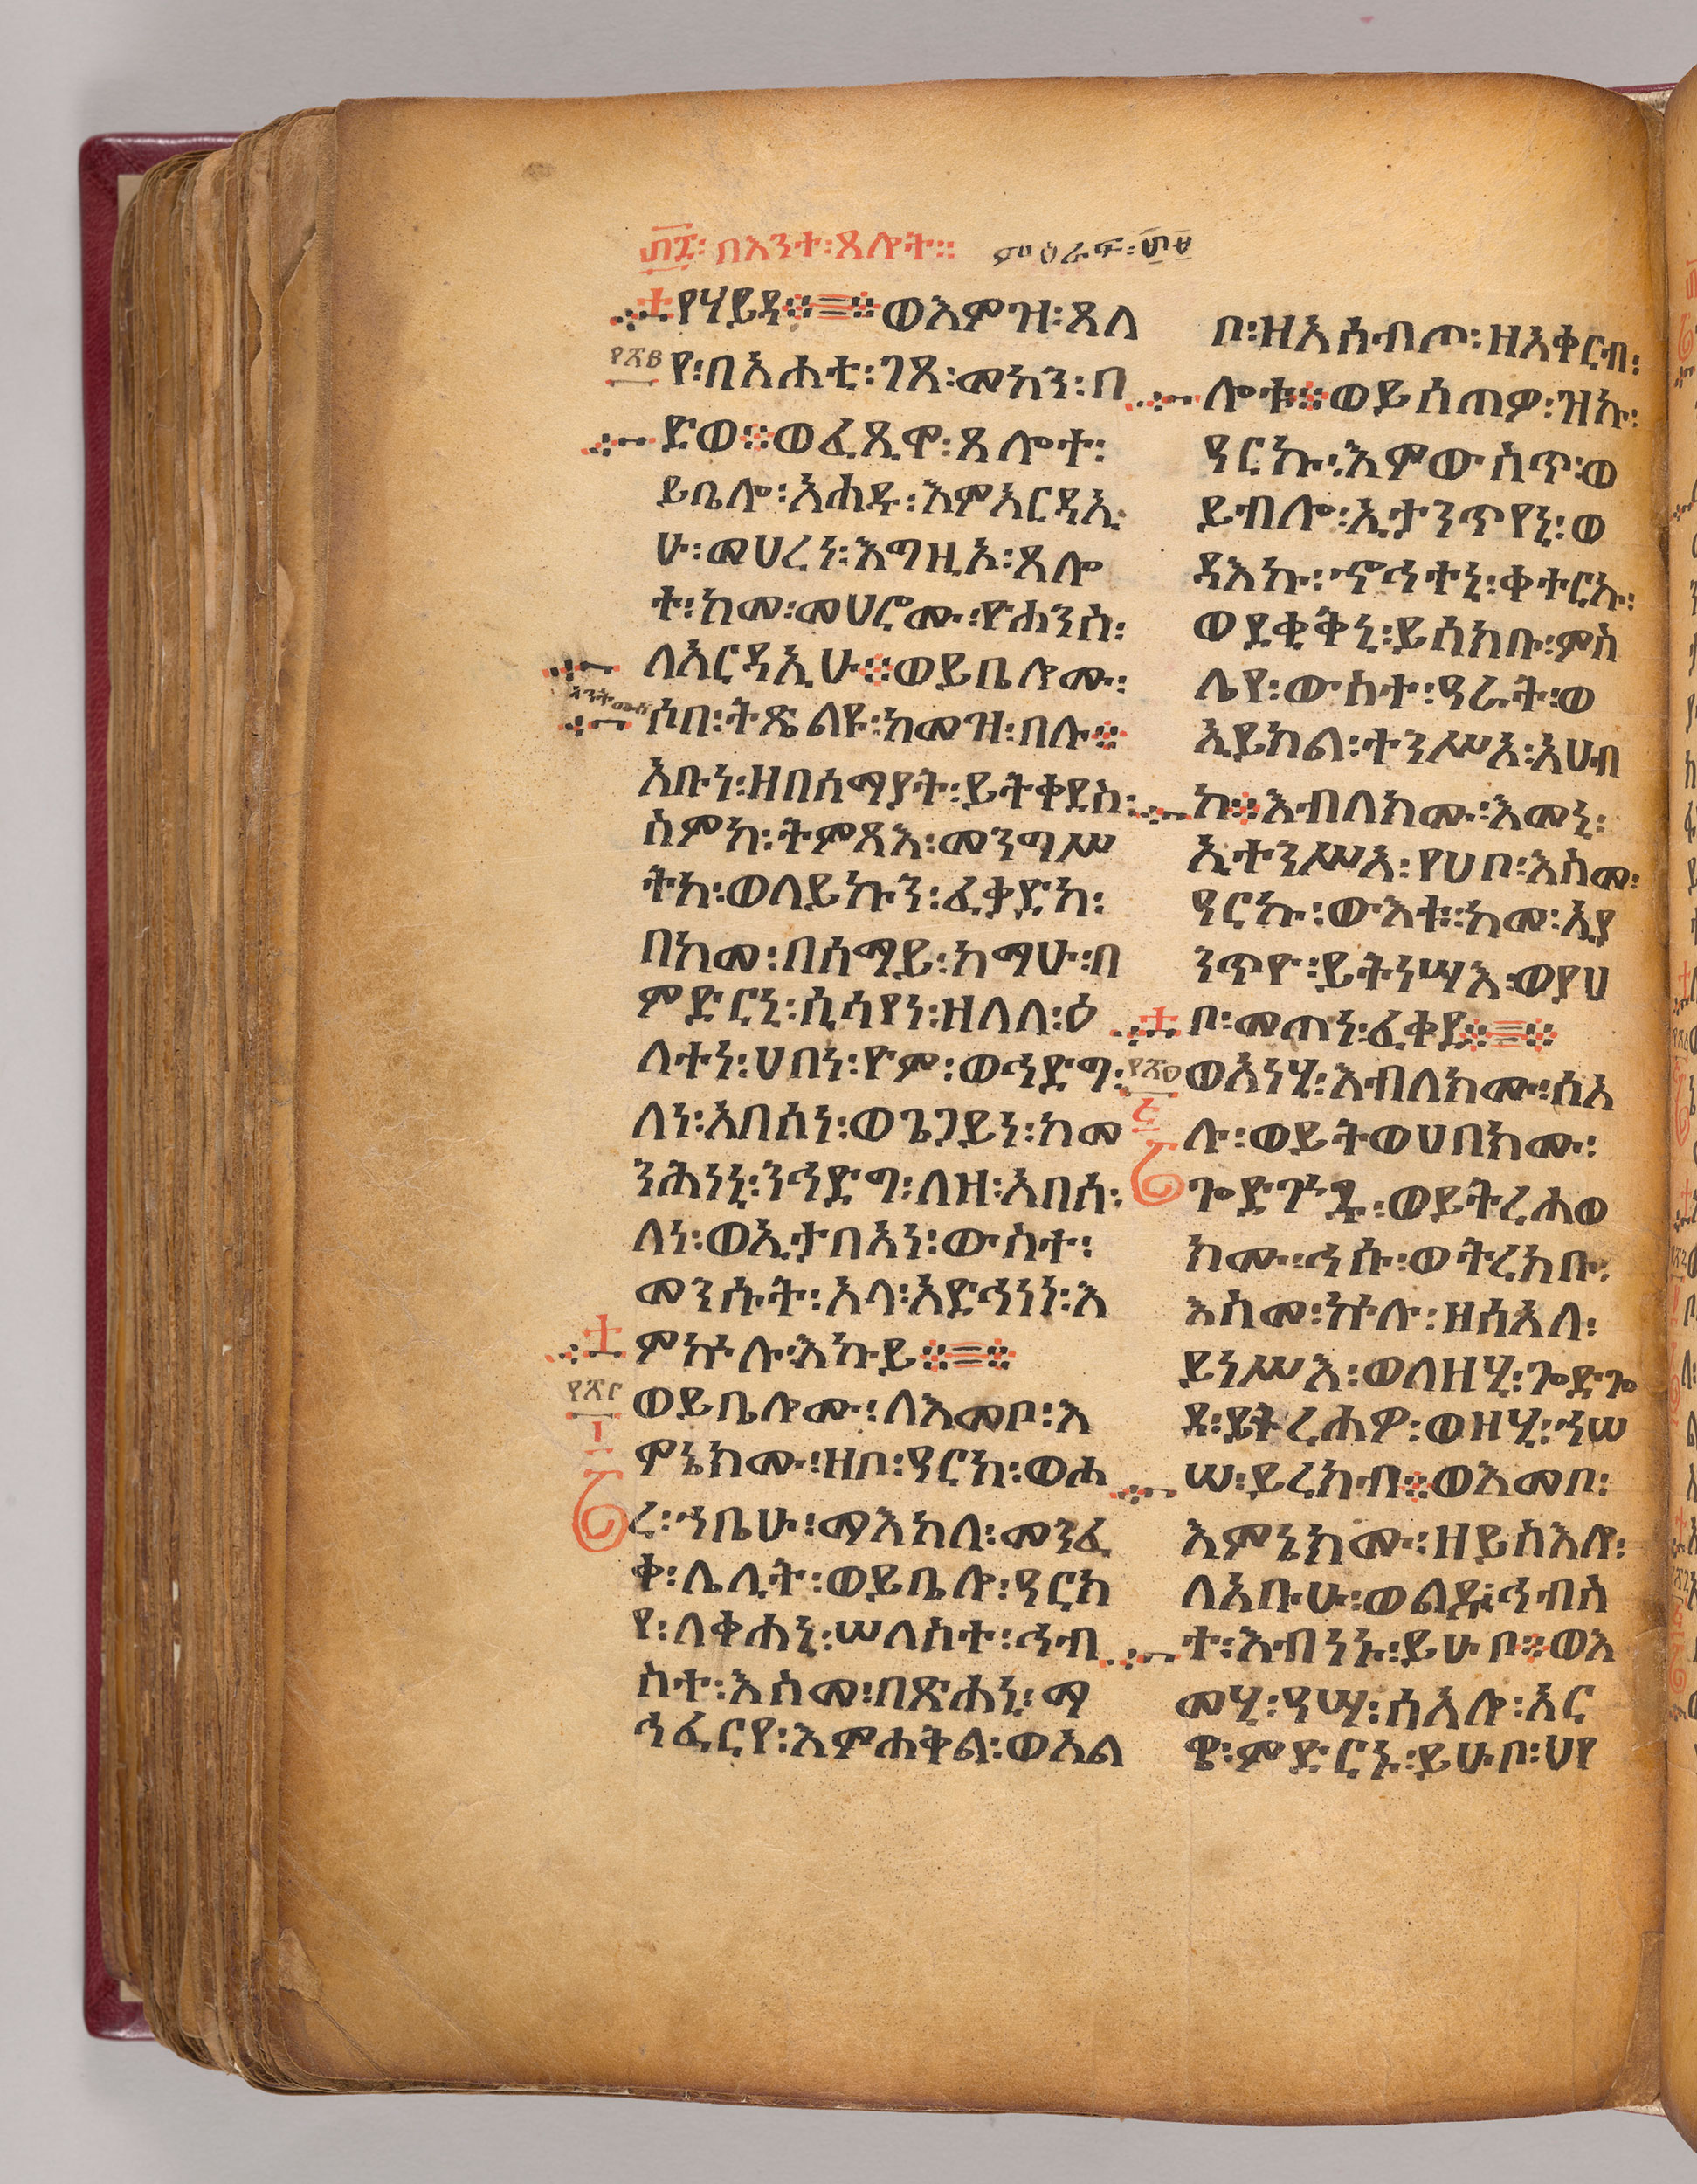 ፴፯፡ በእንተ፡ ጸሎት። ምዕራፍ፡
የሃይዳ። ወእምዝ፡ ጸለ
የ፡ በአሐቲ፡ ገጸ፡ መካን፡ በ
ድወ። ወፈጺሞ፡ ጸሎተ፡
ይቤሎ፡ አሐዱ፡ እምአርዳኢ
ሁ፡ መሀረነ፡ እግዚኦ፡ ጸሎ
ተ፡ ከመ፡ መሀሮሙ፡ ዮሐንስ፡
ለአርዳኢሁ። ወይቤሎሙ፡
ሶበ፡ ትጼልዩ፡ ከመዝ፡ በሉ።
አቡነ፡ ዘበሰማያት፡ ይትቀደስ፡
ስምከ፡ ትምጻእ፡ መንግሥ
ትከ፡ ወለይኩን፡ ፈቃድከ፡
በከመ፡ በሰማይ፡ ከማሁ፡ በ
ምድርኒ፡ ሲሳየነ፡ ዘለለ፡ ዕ
ለትነ፡ ሀበነ፡ ዮም፡ ወኅድግ፡
ለነ፡ አበሰነ፡ ወጌጋይነ፡ ከመ
ንሕነኒ፡ ንኅድግ፡ ለዘ፡ አበሰ፡
ለነ፡ ወኢታብአነ፡ ውስተ፡
መንሱት፡ አላ፡ አድኅነነ፡ እ
ምኵሉ፡ እኩይ።
ወይቤሎሙ፡ ለእመቦ፡ እ
ምኔክሙ፡ ዘቦ፡ ዓርከ፡ ወሐ
ረ፡ ኀቤሁ፡ ማእከለ፡ መንፈ
ቀ፡ ሌሊት፡ ወይቤሎ፡ ዓርክ
የ፡ ለቅሐኒ፡ ሠለስተ፡ ኅብ
ስተ፡ እስመ፡ በጽሐኒ፡ ማ
ኅፈርየ፡ እምሐቅል፡ ወአል
ቦ፡ ዘእሰብጦ፡ ዘእቀርብ፡
ሎቱ። ወይሰጠዎ፡ ዝኩ፡
ዓርኩ፡ እምውስጥ፡ ወ
ይብሎ፡ ኢታንጥየኒ፡ ወ
ዳእኩ፡ ኆኅተኒ፡ ቀተርኩ፡
ወደቂቅኒ፡ ይሰክቡ፡ ምስ
ሌየ፡ ውስተ፡ ዓራት፡ ወ
ኢይክል፡ ተንሥአ፡ አሀብ
ከ። እብለክሙ፡ እመኒ፡
ኢተንሥአ፡ የሀቦ፡ እስመ፡
ዓርኩ፡ ውእቱ፡ ከመ፡ ኢያ
ንጥዮ፡ ይትነሣእ፡ ወያሀ
ቦ፡ መጠነ፡ ፈቀደ።
ወአነሂ፡ እብለክሙ፡ ሰአ
ሉ፡ ወይትወሀበክሙ፡
ጐድጕዱ፡ ወይትረሐወ
ክሙ፡ ኅሱ፡ ወትረክቡ፡
እስመ፡ ኵሉ፡ ዘሰአለ፡
ይነሥእ፡ ወለዘሂ፡ ጐድጐ
ደ፡ ይትረሐዎ፡ ወዘሂ፡ ኀሠ
ሠ፡ ይረክብ። ወእመቦ፡
እምኔክሙ፡ ዘይስእሎ፡
ለአቡሁ፡ ወልዱ፡ ኅብስ
ተ፡ እብንኑ፡ ይሁቦ። ወእ
መሂ፡ ዓሣ፡ ሰአሎ፡ አር
ዌ፡ ምድርኑ፡ ይሁቦ፡ ህየ